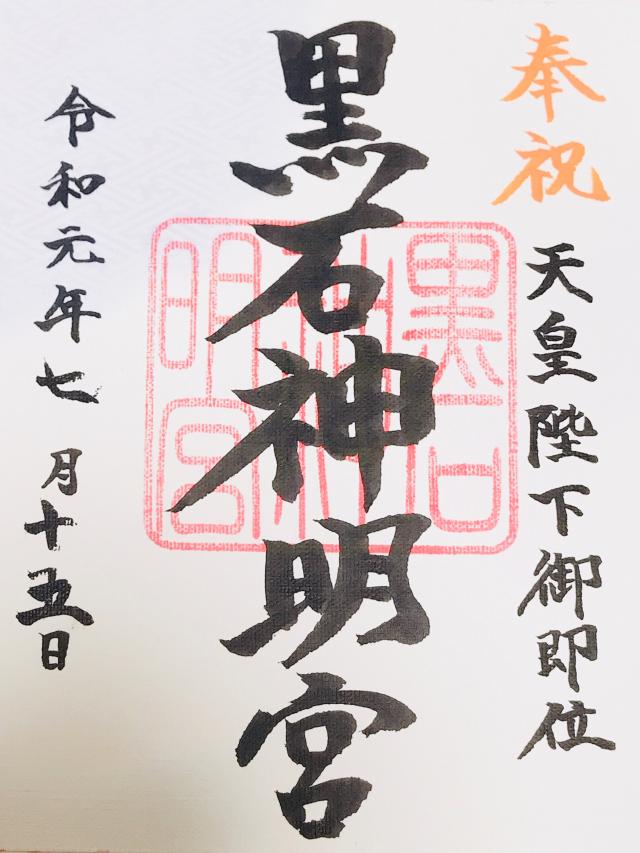 奉祝
天皇陛下御即位
黒石神明宮
黒石
神
明宮
令和元年七月十五日